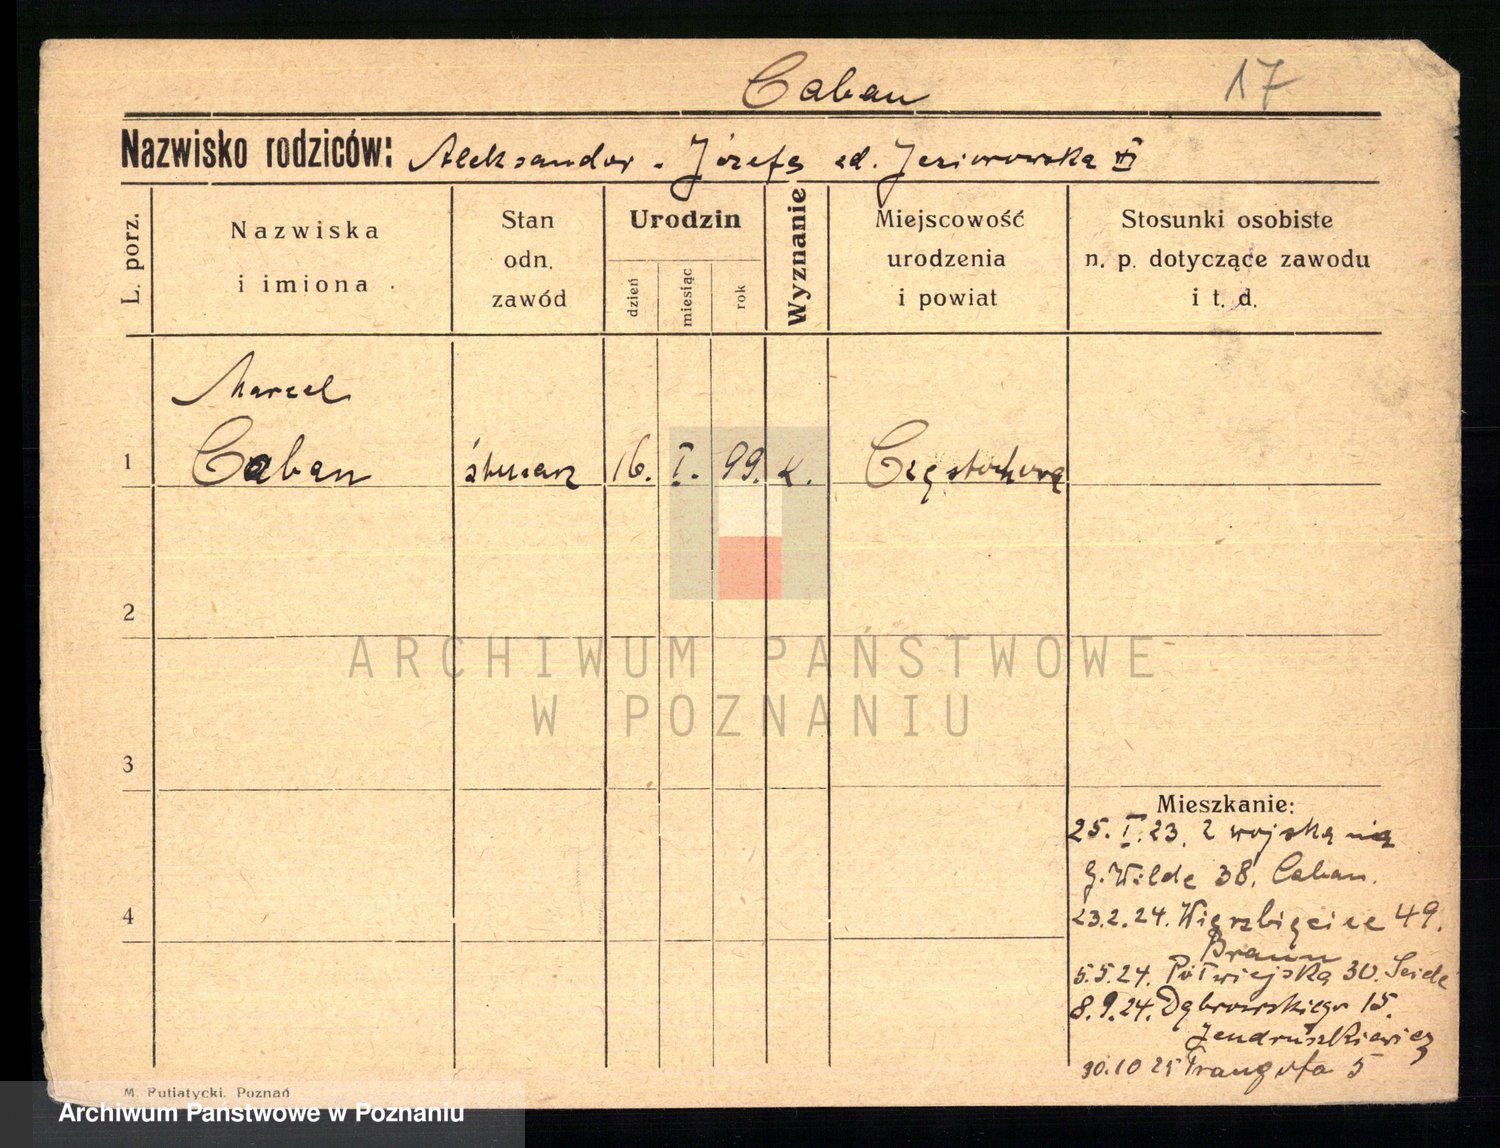 Caban
17
Nazwisko rodziców: Aleksander - Józefa
L. porz.
Nazwiska
i imiona
Stan
odn.
zawód
Urodzin
dzień
miesiąc
rok
Wyznanie
Miejscowość
urodzenia
i powiat
Stosunki osobiste
n. p. dotyczące zawodu
i t. d.
Marcel
1 Caban ślusarz 16. I. 99. K. Częstochowa
2
3
4
ARCHIWUM PAŃSTWOWE
W POZNANIU
Mieszkanie:
25. I. 23. z wojska na
G. Wilde 38. Caban.
23.2.24. Wierzbięcice 49.
Braun
5.5.24. Półwiejska 30.
8.9.24. Dąbrowskiego 15.
Jendruszkiewicz
30.10 25 Traugutta 5
M. Putiatycki. Poznań
Archiwum Państwowe w Poznaniu